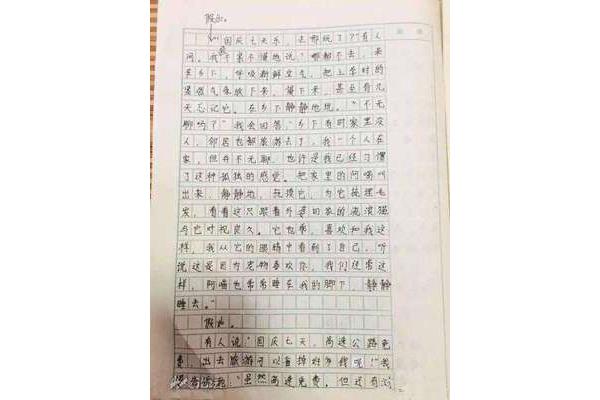 假如。
"国庆七天乐,去哪玩了?"有人
问。我会不慌地说"哪都不去,来
至乡下,呼吸新鲜空气,把上学时的
紧张气氛放下来,慢下来,甚至有几
天忘记它,在乡下静静地玩。""不无
聊吗?""我会回答"乡下有时家里没
人,邻居也都旅游去了,我一个人在
家,但并不无聊,也许是我已经习惯
了这种孤独的感觉。把家里的阿喵叫
出来,静静地,抚摸它,为它梳理毛
发,看看这只跟着外婆回家的流浪猫
与它对视良久。它也乖,喜欢和我这
样,我从它的眼睛中看到了自己,听
说这是因为宠物喜欢你,我们经常这
样,阿喵也常常睡在我的脚下,静静
睡去。"
假如。
有人说"国庆七天,高速公路免
费,出去旅游可以省掉好多钱呢!"我
告诉她:"虽然高速免费,但还有